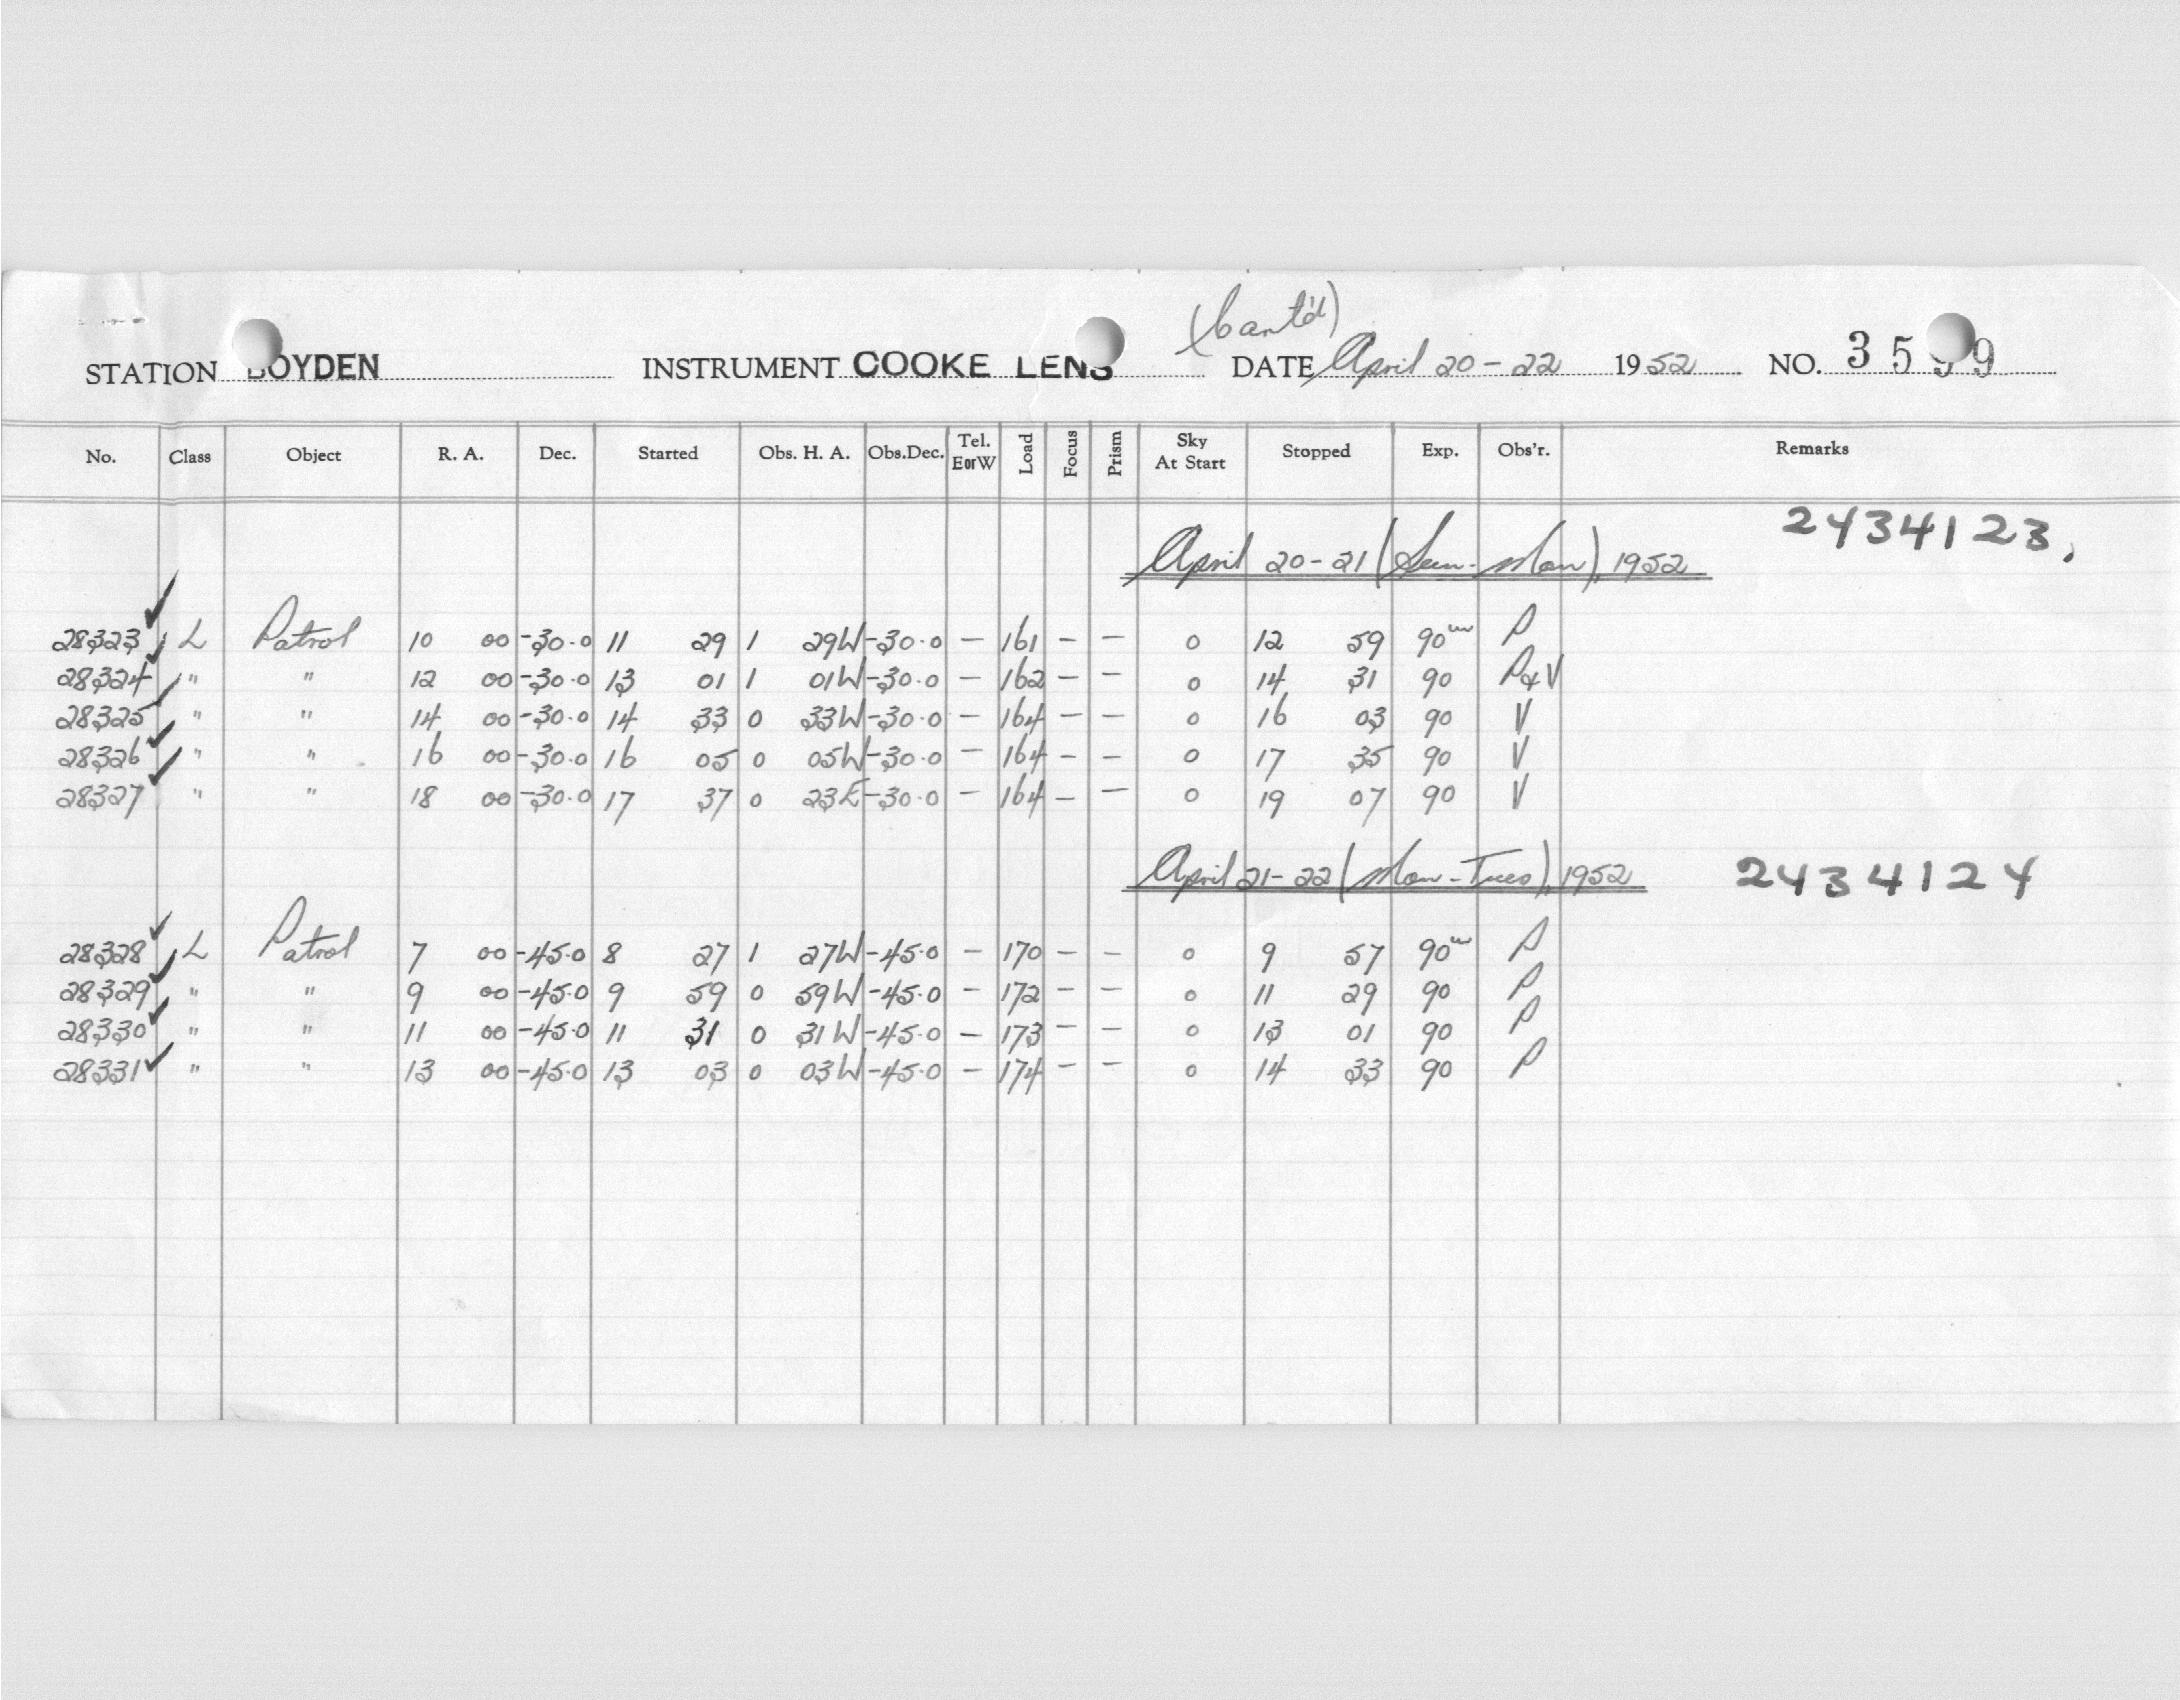 (Cont'd)
STATION BOYDEN INSTRUMENT COOKE LENS DATE April 20-22 1952 NO. 3599
No. Class Object R. A. Dec. Started Obs. H. A. Obs.Dec. Tel. EorW Load Focus Prism Sky At Start Stopped Exp. Obs'r. Remarks
April 20-21 (Sun-Mon), 1952 2434123.
28323 ✓ L Patrol 10 00 -30.0 11 29 1 29W -30.0 — 161 — — 0 12 59 90m P
28324 ✓ " " 12 00 -30.0 13 01 1 01W -30.0 — 162 — — 0 14 31 90 P&V
28325 ✓ " " 14 00 -30.0 14 33 0 33W -30.0 — 164 — — 0 16 03 90 V
28326 ✓ " " 16 00 -30.0 16 05 0 05W -30.0 — 164 — — 0 17 35 90 V
28327 ✓ " " 18 00 -30.0 17 37 0 23E -30.0 — 164 — — 0 19 07 90 V
April 21-22 (Mon-Tues), 1952 2434124
28328 ✓ L Patrol 7 00 -45.0 8 27 1 27W -45.0 — 170 — — 0 9 57 90m P
28329 ✓ " " 9 00 -45.0 9 59 0 59W -45.0 — 172 — — 0 11 29 90 P
28330 ✓ " " 11 00 -45.0 11 31 0 31W -45.0 — 173 — — 0 13 01 90 P
28331 ✓ " " 13 00 -45.0 13 03 0 03W -45.0 — 174 — — 0 14 33 90 P